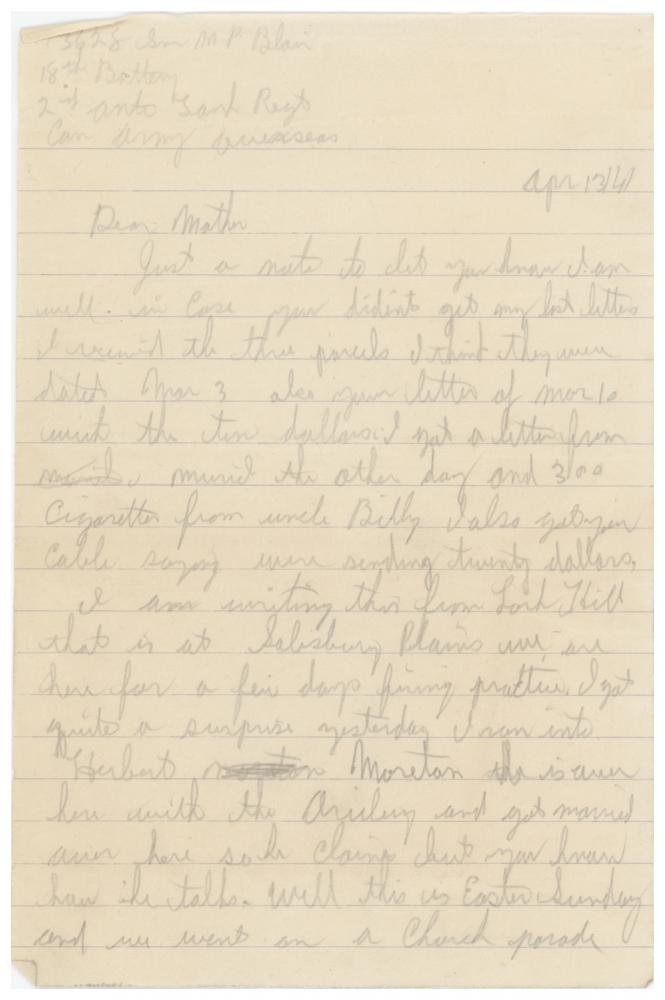 73628 Gnr M P Blair
18th Battery
2nd anto Tank Regt
Can Army Overseas
Apr 13/41
Dear Mother
Just a note to let you know I am
well. in case you didint get my last letters
I received the three parcels I think they were
dated Mar 3 also your letter of mar 10
with the ten dollars. I got a letter from
muriel the other day and 300
Cigarettes from uncle Billy I also got your
Cable saying were sending twenty dollars,
I am writing this from Lark Hill
that is at Salisbury Plains we are
here for a few days firing practice. I got
quite a surprise yesterday I ran into
Herbert Moreton he is over
here with the and got married
over here so he claims but you know
how he talks. Well this is Easter Sunday
and we went on a Church parade